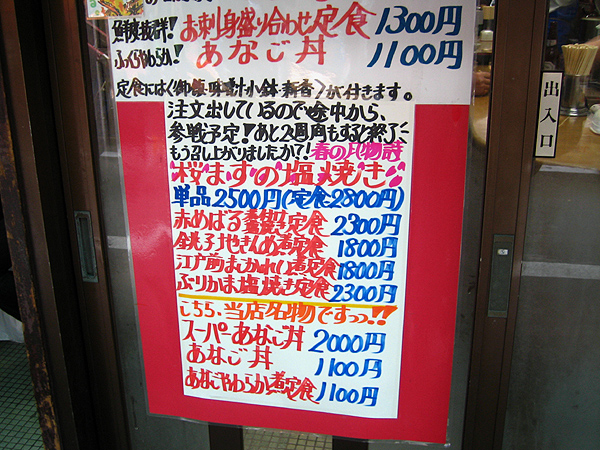 鮮度抜群! お刺身盛り合わせ定食 1300円
ふっくらやわらか! あなご丼 1100円
定食には(御飯・味噌汁・小鉢・新香)が付きます。
注文出しているので途中から、
参戦予定!あと2週間もすると終了!
もう召し上がりましたか?!春の風物詩
桜ますの塩焼き
単品2500円(定食2800円)
赤めばる 定食 2300円
銚子 きんめ煮定食 1800円
江戸前まこかれい煮定食 1800円
ぶりかま塩焼き定食 2300円
こちら、当店名物ですっっ!!
スーパーあなご丼 2000円
あなご丼 1100円
あなごやわらか煮定食 1100円
出入口